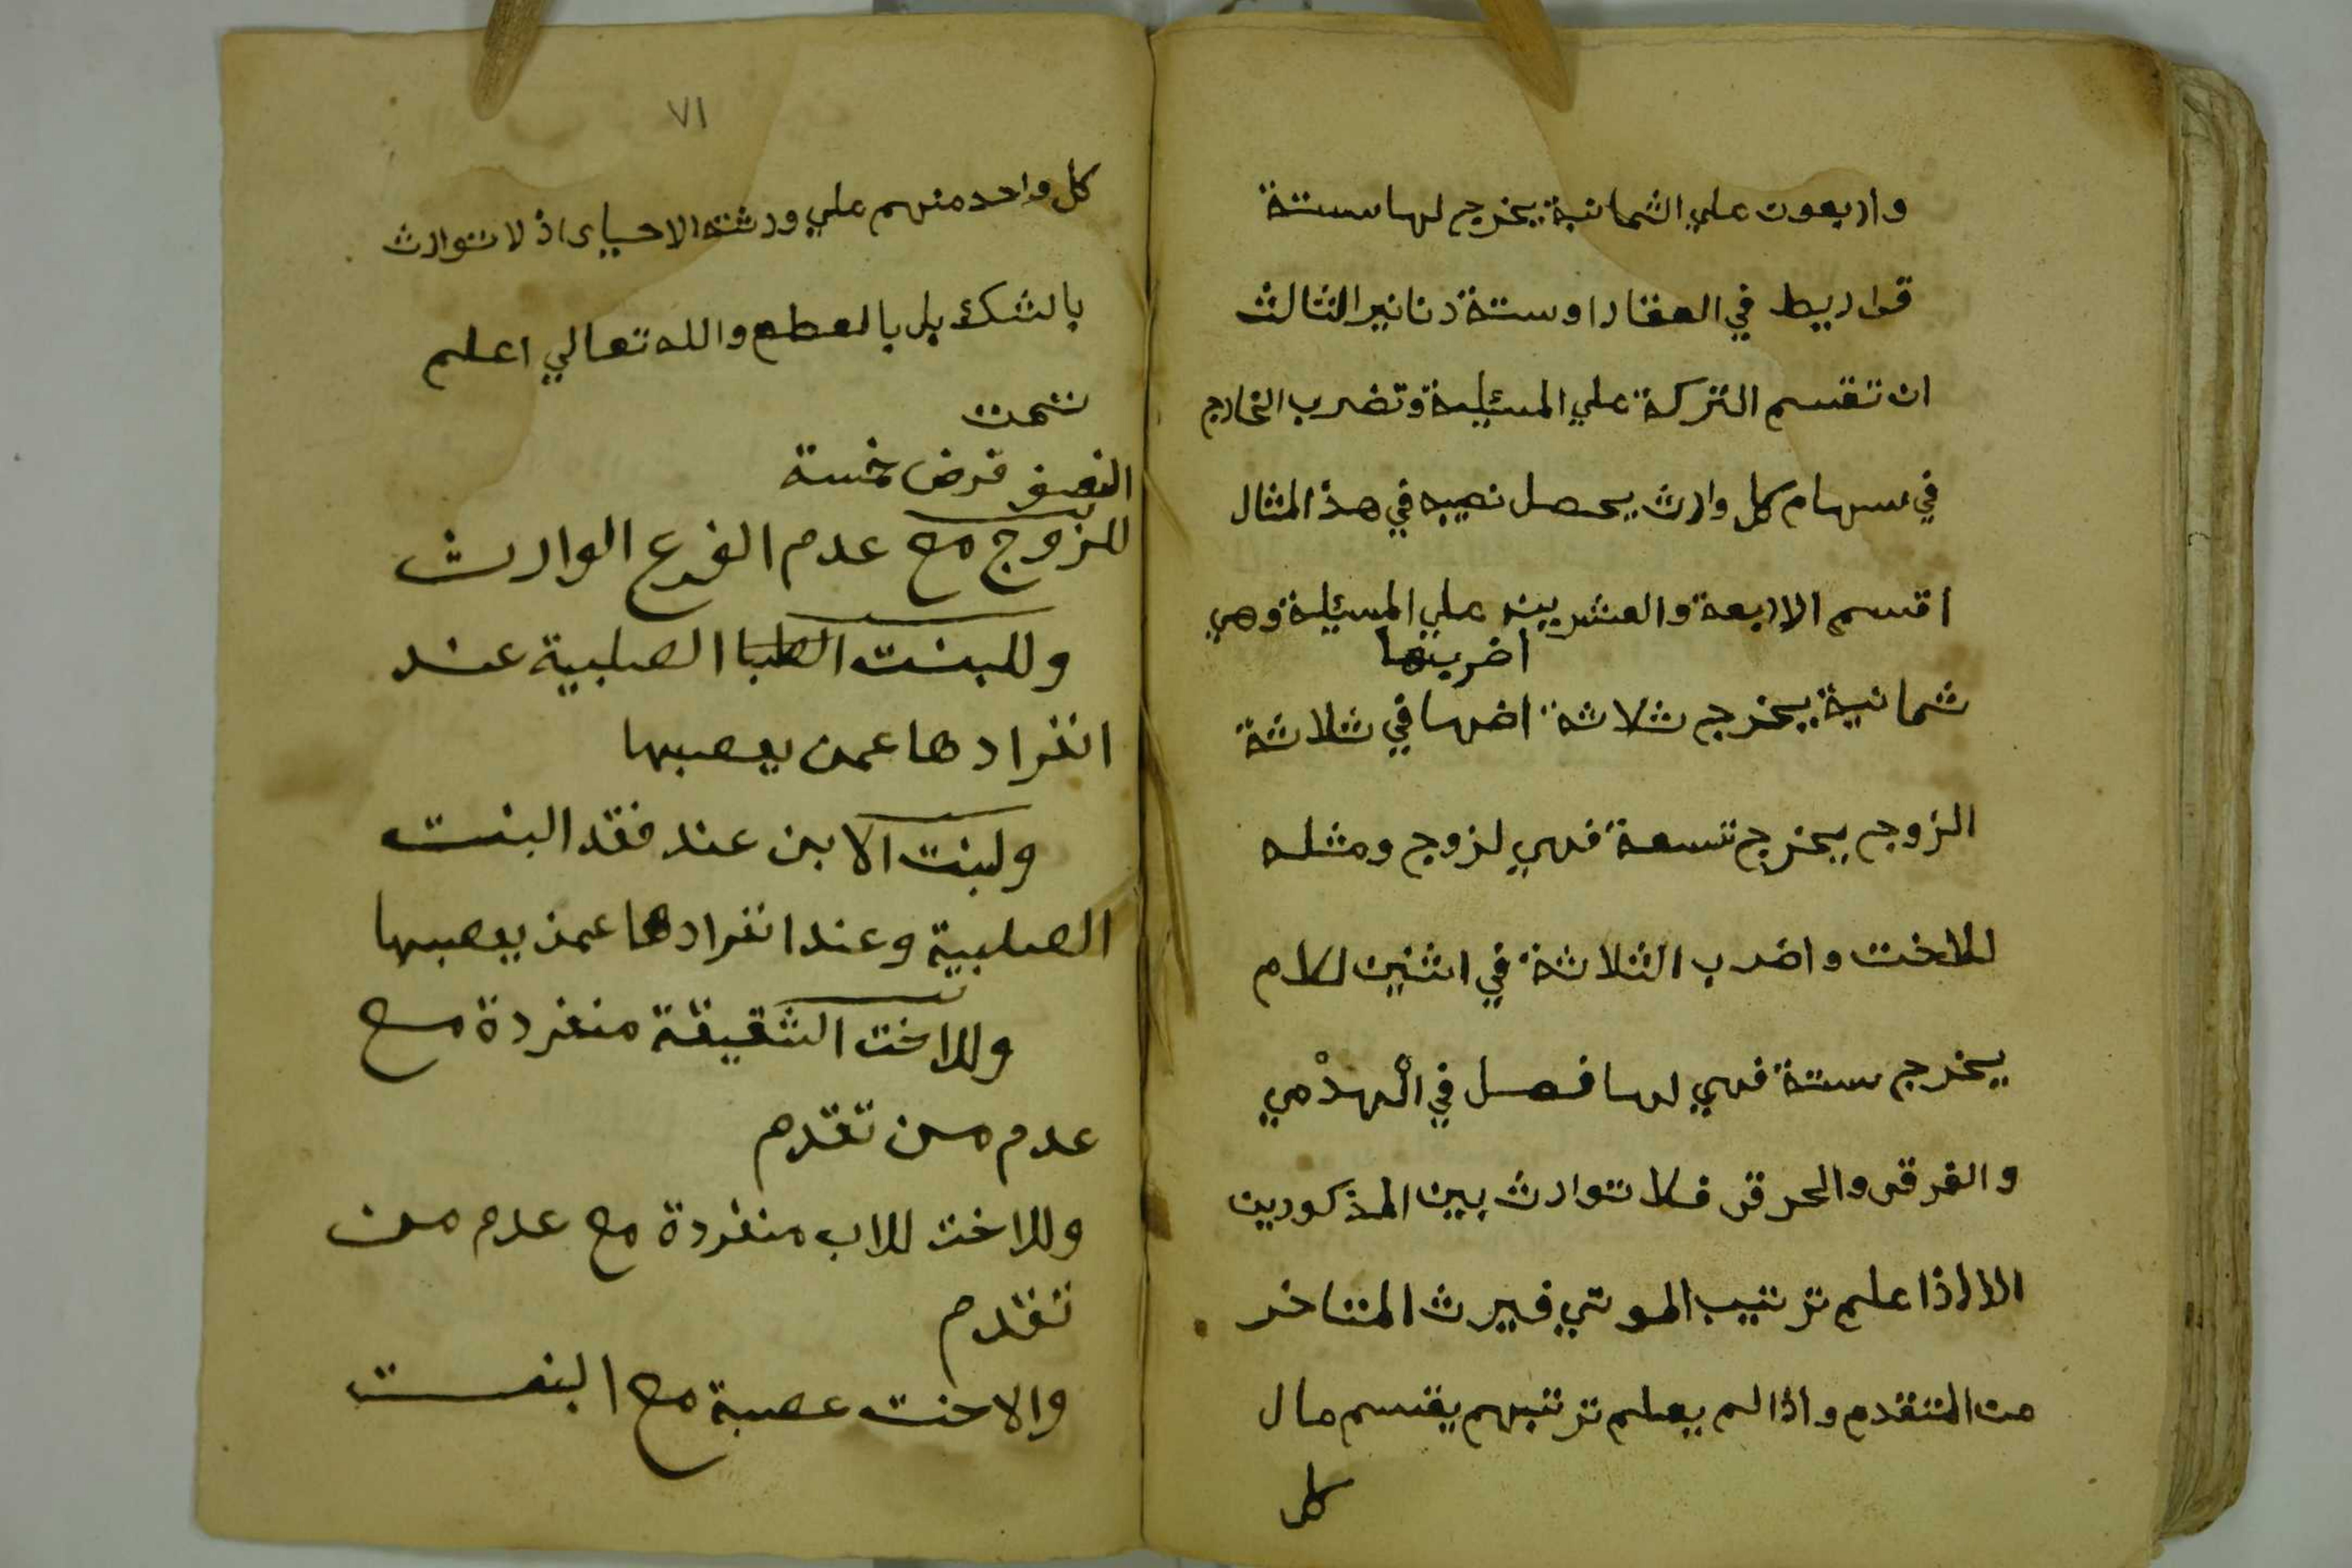 واربعون علي الثمانية يخرج لها ستة
قراريط في العقار اوستة دنانير الثالث
ان تقسم التركة علي المسئلة وتضرب الخارج
في سهام كل وارث يحصل نصيبه في هذ المثال
اقسم الاربعة والعشرين علي المسئلة وهي
اضربها
ثمانية يخرج ثلاثة اضها في ثلاثة
الزوج يخرج تسعة فهي لزوج ومثله
للاخت واضرب الثلاثة في اثنين للام
يخرج ستة فهي لها فصل في الْهدْمي
والغرقى والحرقى فلا توارث بين المذكورين
الا اذا علم ترتيب الموتي فيرث المتاخر
من المتقدم واذا لم يعلم ترتيبهم يقسم مال
كل
٧١
كل واحد منهم علي ورثته الاحياى اذ لا توارث
بالشك بل بالقطع والله تعالي اعلم
تتمت
النصف فرض خمسة
للزوج مع عدم الفرع الوارث
وللبنت الصلبية عند
انفرادها عمن يعصبها
ولبنت الابن عند فقد البنت
الصلبية وعند انفرادها عمن يعصبها
وللاخت الشقيقة منفردة مع
عدم من تقدم
وللاخت للاب منفردة مع عدم من
تقدم
والاخت عصبة مع البنت